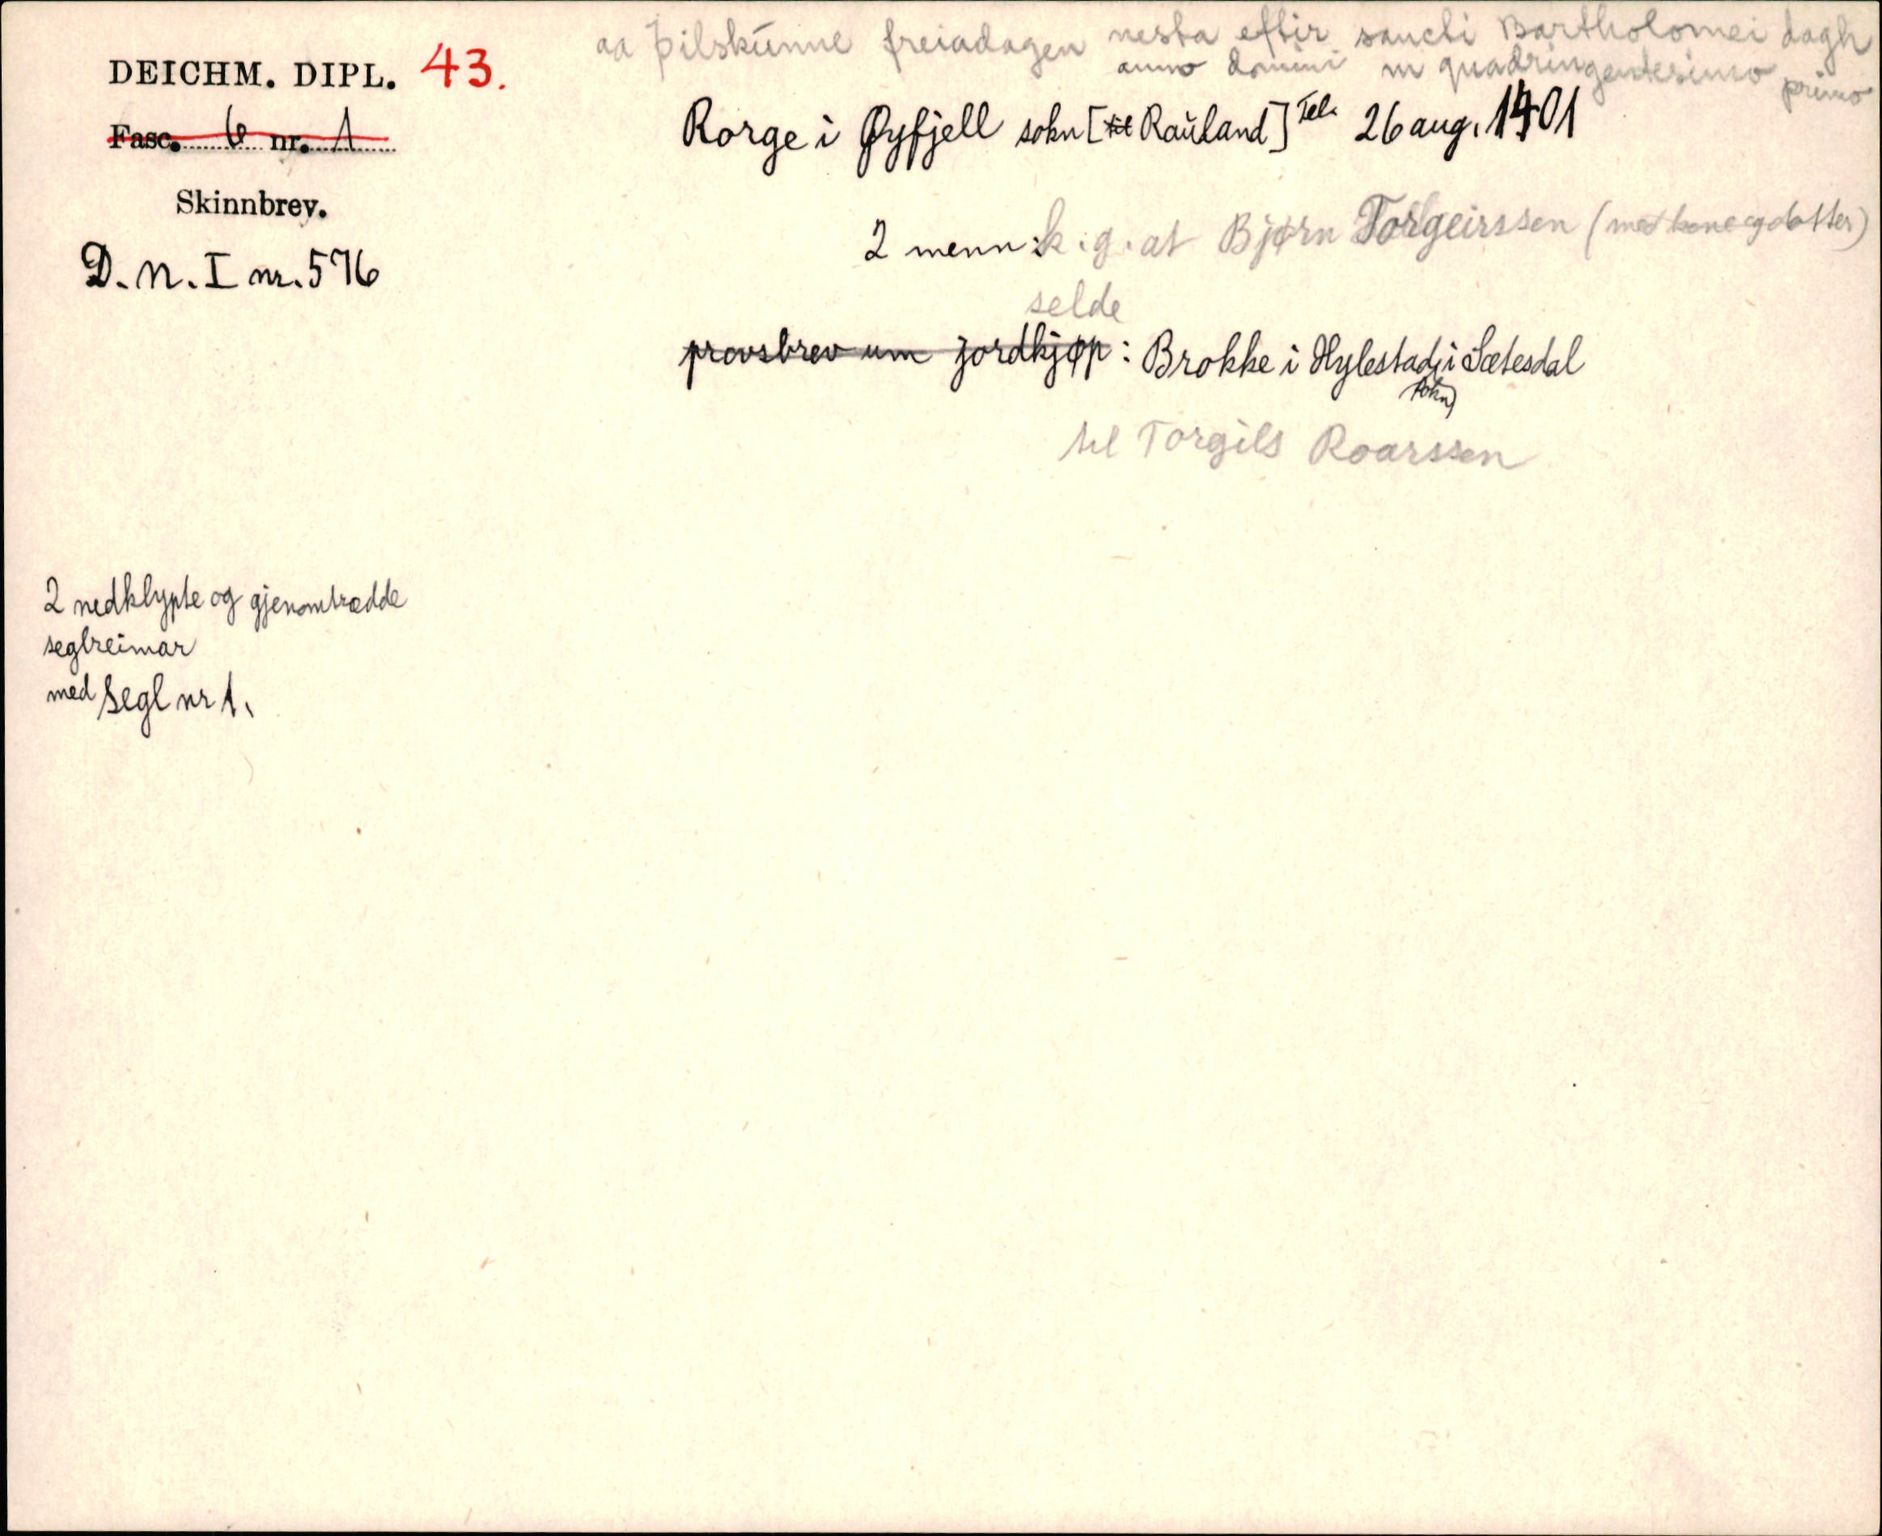 aa þilskunne freiadagen nesta eftir sancti Bartholomei dagh
anno domini m quadringentesimo primo
DEICHM. DIPL. 43.
Fasc. 6 nr. 1
Skinnbrev.
D.N. I nr. 576
Rorge i Øyfjell sokn [til Rauland] Tel. 26 aug. 1401
2 menn: k.g. at Bjørn Torgeirssen (med kone og dotter)
selde
provsbrev um jordkjøp: Brokke i Hylestad i Sætesdal
sokn
til Torgils Roarssen
2 nedklypte og gjenomtrædde
seglreimar
med segl nr 1.